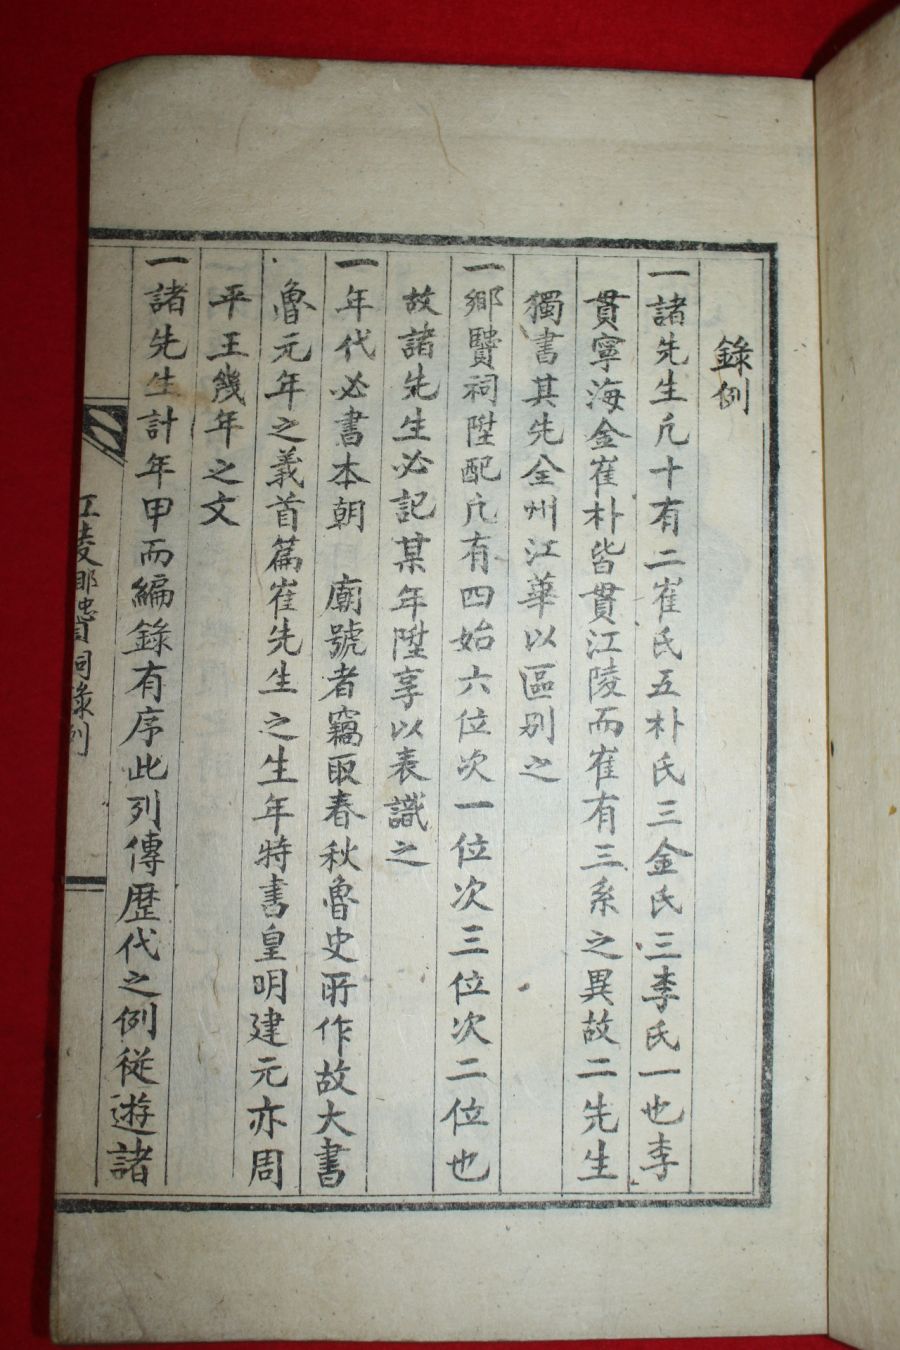 錄例
一諸先生凡十有二崔氏五朴氏三金氏三李氏一也李
貫寧海金崔朴皆貫江陵而崔有三系之異故二先生
獨書其先全州江華以區别之
一鄉賢祠陞配凢有四始六位次一位次三位次二位也
故諸先生必記某年陞享以表識之
一年代必書本朝 廟號者竊取春秋魯史所作故大書
魯元年之義首篇崔先生之生年特書皇明建元亦周
平王幾年之文
一諸先生計年甲而編錄有序此列傳歷代之例從遊諸
江陵鄉賢祠錄例